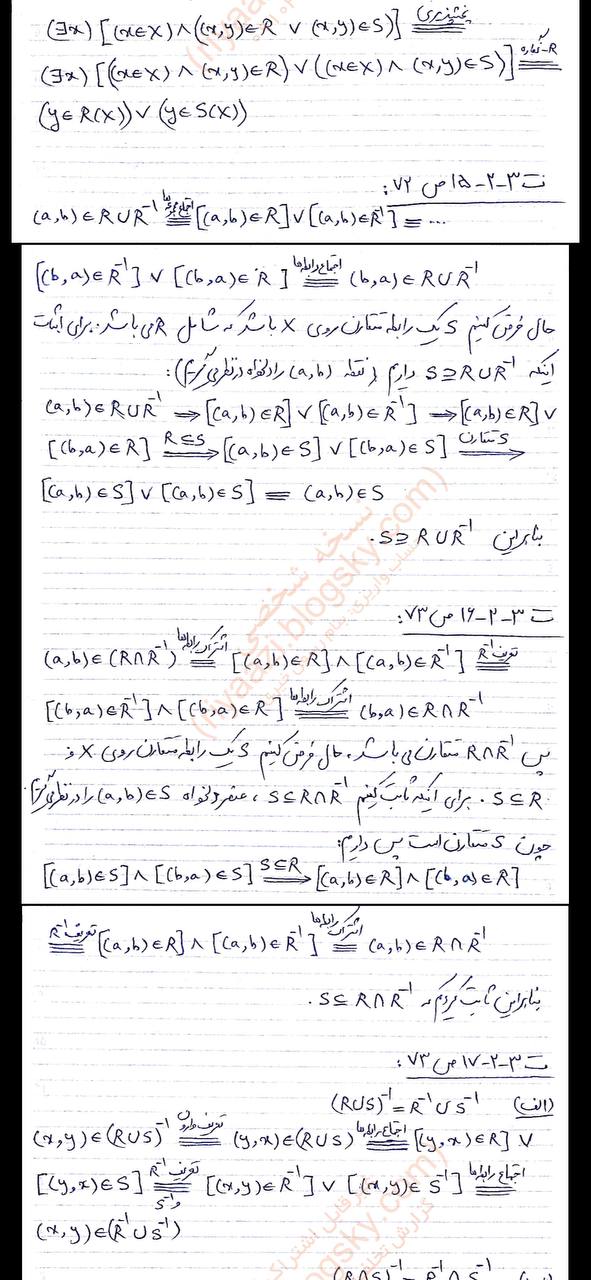 (∃x)[(x∈X)∧((x,y)∈R ∨ (x,y)∈S)] پخش‌پذیری ≡
(∃x)[((x∈X)∧(x,y)∈R)∨((x∈X)∧(x,y)∈S)] R-نگاره ≡
(y∈R(X))∨(y∈S(X))
ت ۳-۲-۱۵ ص ۷۲:
(a,b)∈R∪R⁻¹ اجتماع ≡ [(a,b)∈R]∨[(a,b)∈R⁻¹] ≡ ...
[(b,a)∈R⁻¹]∨[(b,a)∈R] اجتماع رابطه‌ها ≡ (b,a)∈R∪R⁻¹
حال فرض کنیم S یک رابطه متقارن روی X باشد که شامل R می باشد. برای اثبات
اینکه S⊇R∪R⁻¹ داریم (نقطه (a,b) را دلخواه در نظر می گیریم):
(a,b)∈R∪R⁻¹ ⟹ [(a,b)∈R]∨[(a,b)∈R⁻¹] ⟹ [(a,b)∈R]∨
[(b,a)∈R] R⊆S ⟹ [(a,b)∈S]∨[(b,a)∈S] S متقارن ⟹
[(a,b)∈S]∨[(a,b)∈S] ≡ (a,b)∈S
بنابراین S⊇R∪R⁻¹.
ت ۳-۲-۱۶ ص ۷۳:
(a,b)∈(R∩R⁻¹) اشتراک رابطه‌ها ≡ [(a,b)∈R]∧[(a,b)∈R⁻¹] تعریف R⁻¹ ≡
[(b,a)∈R⁻¹]∧[(b,a)∈R] اشتراک رابطه‌ها ≡ (b,a)∈R∩R⁻¹
پس R∩R⁻¹ متقارن می باشد. حال فرض کنیم S یک رابطه متقارن روی X و
S⊆R. برای اینکه ثابت کنیم S⊆R∩R⁻¹، عنصر دلخواه (a,b)∈S را در نظر می گیریم.
چون S متقارن است پس داریم:
[(a,b)∈S]∧[(b,a)∈S] S⊆R ⟹ [(a,b)∈R]∧[(b,a)∈R]
تعریف R⁻¹ ≡ [(a,b)∈R]∧[(a,b)∈R⁻¹] اشتراک رابطه‌ها ≡ (a,b)∈R∩R⁻¹
بنابراین ثابت کردیم که S⊆R∩R⁻¹.
ت ۳-۲-۱۷ ص ۷۳:
الف) (R∪S)⁻¹=R⁻¹∪S⁻¹
(x,y)∈(R∪S)⁻¹ تعریف وارون ≡ (y,x)∈(R∪S) اجتماع رابطه‌ها ≡ [(y,x)∈R]∨
[(y,x)∈S] تعریف R⁻¹ و S⁻¹ ≡ [(x,y)∈R⁻¹]∨[(x,y)∈S⁻¹] اجتماع رابطه‌ها ≡
(x,y)∈(R⁻¹∪S⁻¹)
نسخه شخصی
(riyaazi.blogsky.com)